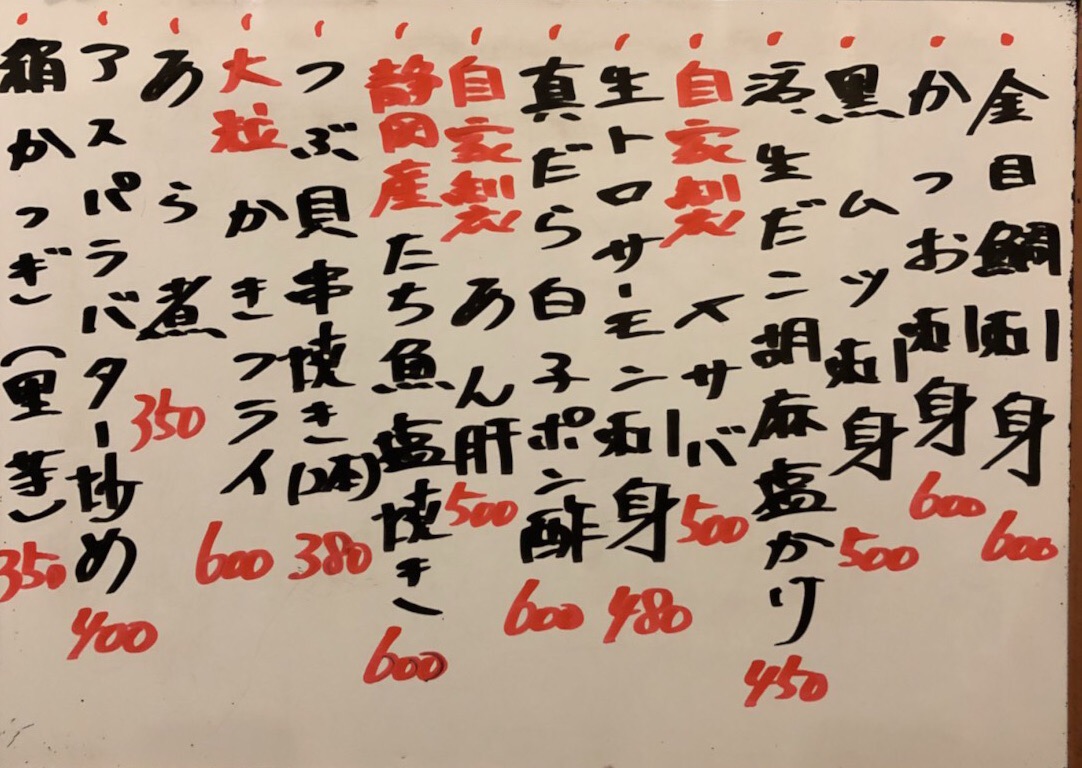 金目鯛刺身 600
かつお刺身 600
黒ムツ刺身 500
活生だこ胡麻塩かけ 450
自家製 〆サバ 500
生トロサーモン刺身 480
真だら白子ポン酢 600
自家製 あん肝 500
静岡産 たち魚塩焼き 600
つぶ貝串焼き(2本) 380
大粒 かきフライ 600
あら煮 350
アスパラバター炒め 400
絹かつぎ(里芋) 350